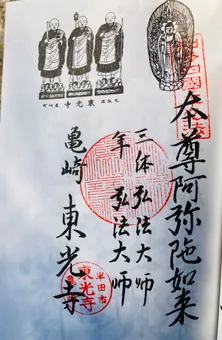 東光寺
本尊阿弥陀如来
三体弘法大師
年弘法大師
亀崎 東光寺
半田市
東光寺